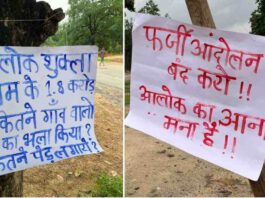 लोक शुक्ला
म के 1.8 करोड़
कितने गांव वालो
का भला किया?
कितने पेड़ लगाये?
फर्जी आंदोलन
बंद करो !!
आलोक का आना
मना है !!